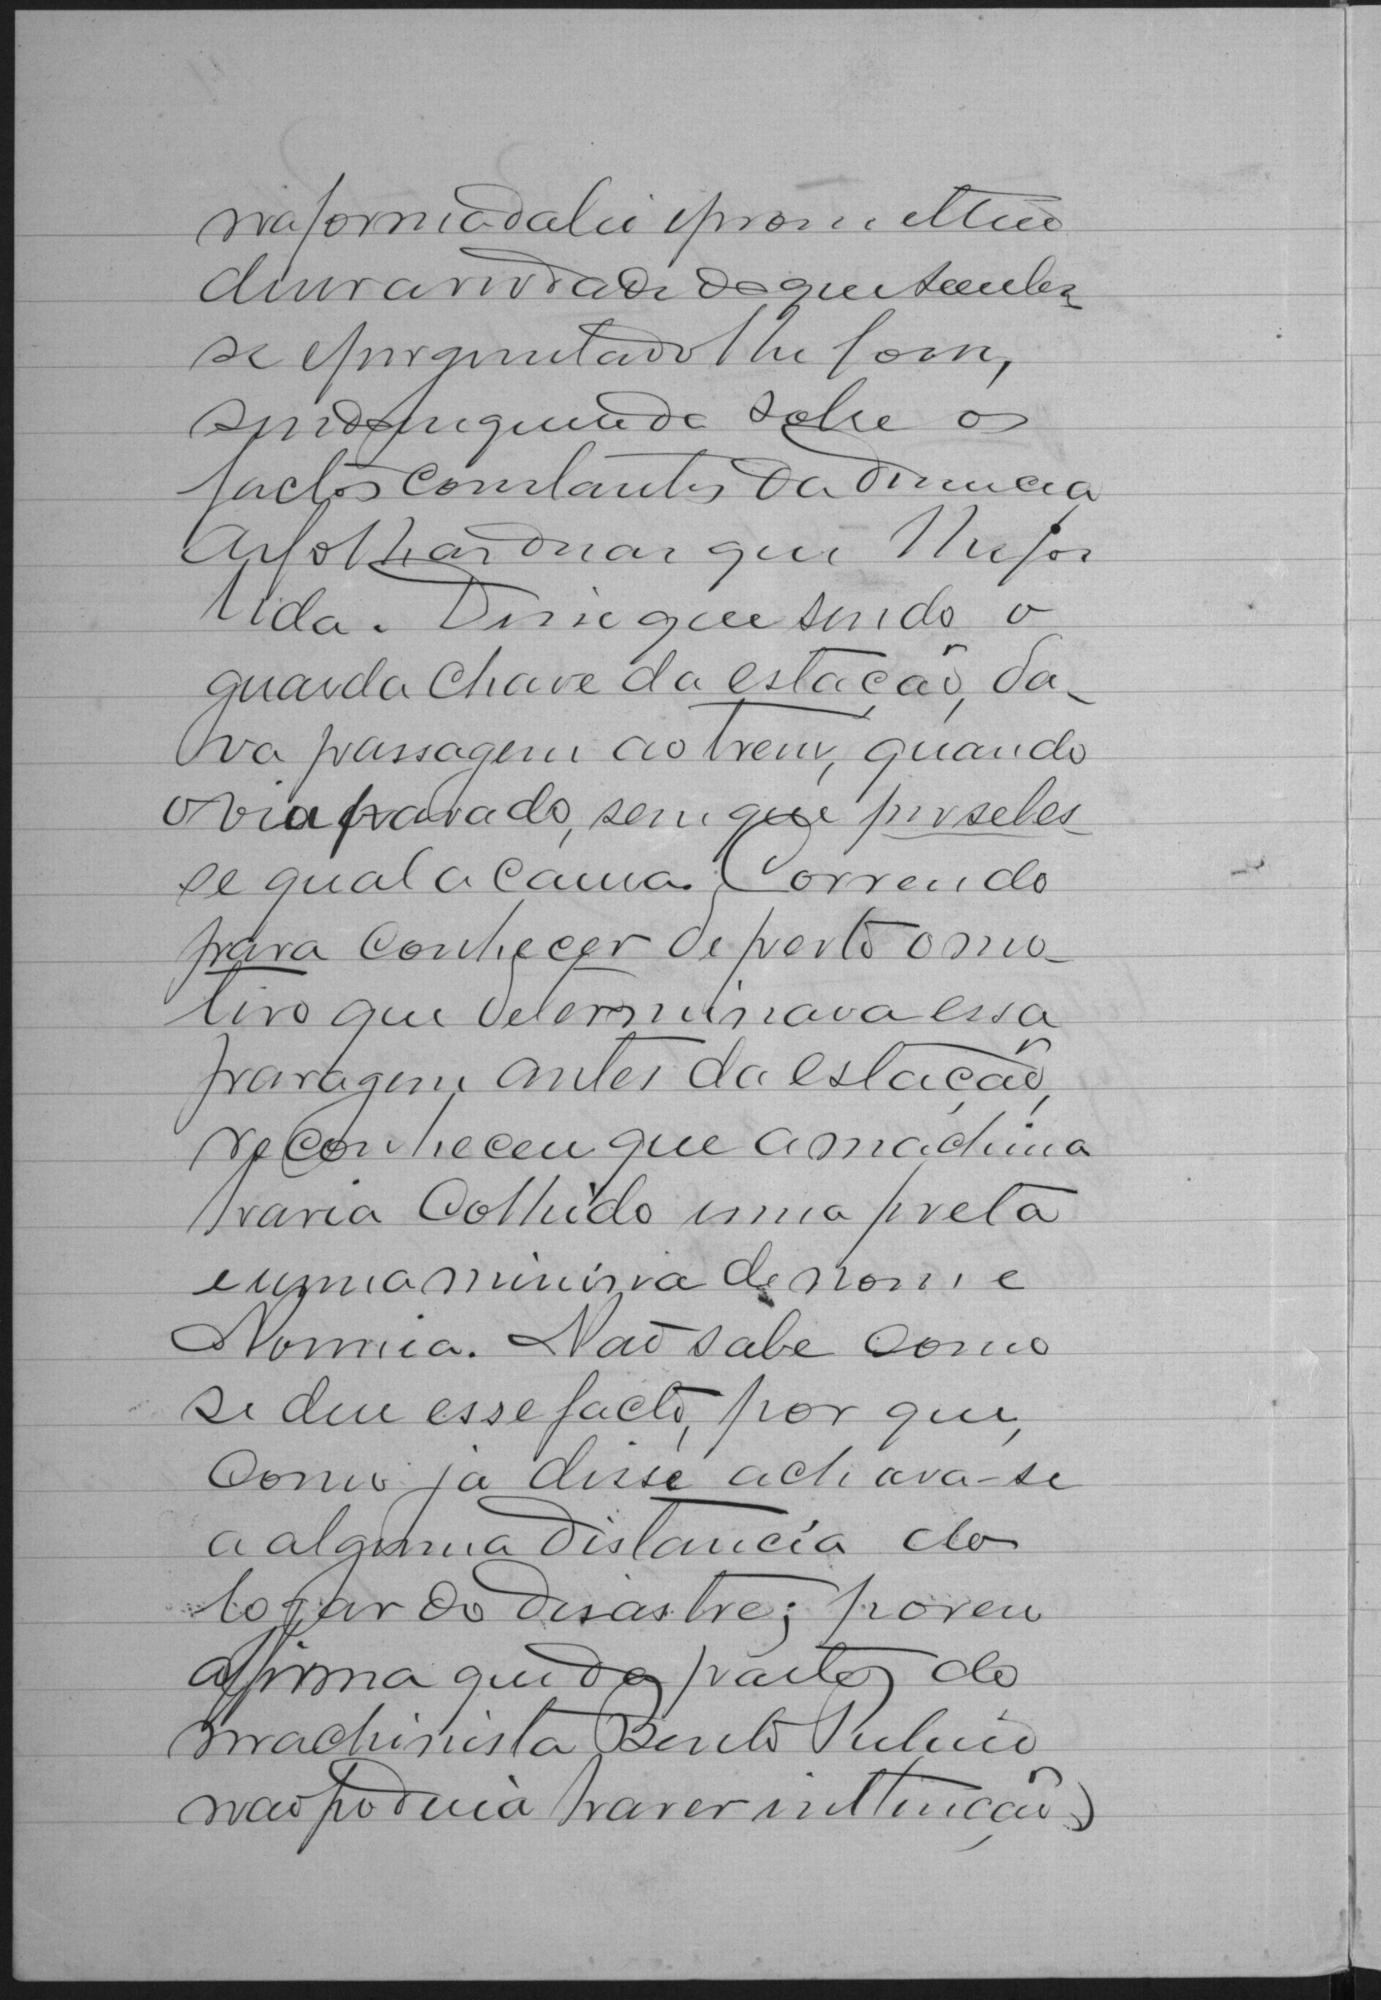 na forma da lei e prometteo
dizer a verdade do que soubes
se e perguntado lhe fosse,
sendo inquerido sobre os
factos constantes da denuncia
as folhas duas que lhe foi
lida. Disse que sendo o
guarda chave da estação, da-
va passagem ao trem, quando
o via parado, sem que pudeses-
se qual a causa. Correndo
para conhecer de perto o mo-
tivo que determinava essa
paragem antes da estação,
reconheceu que a machina
havia colhido uma preta
e uma menina de nome
Noemia. Não sabe como
se deu esse facto, por que,
como já disse achava-se
a alguma distancia do
logar do desastre; porem
affirma que da parte do
machinista Bento
não poderia haver intenção